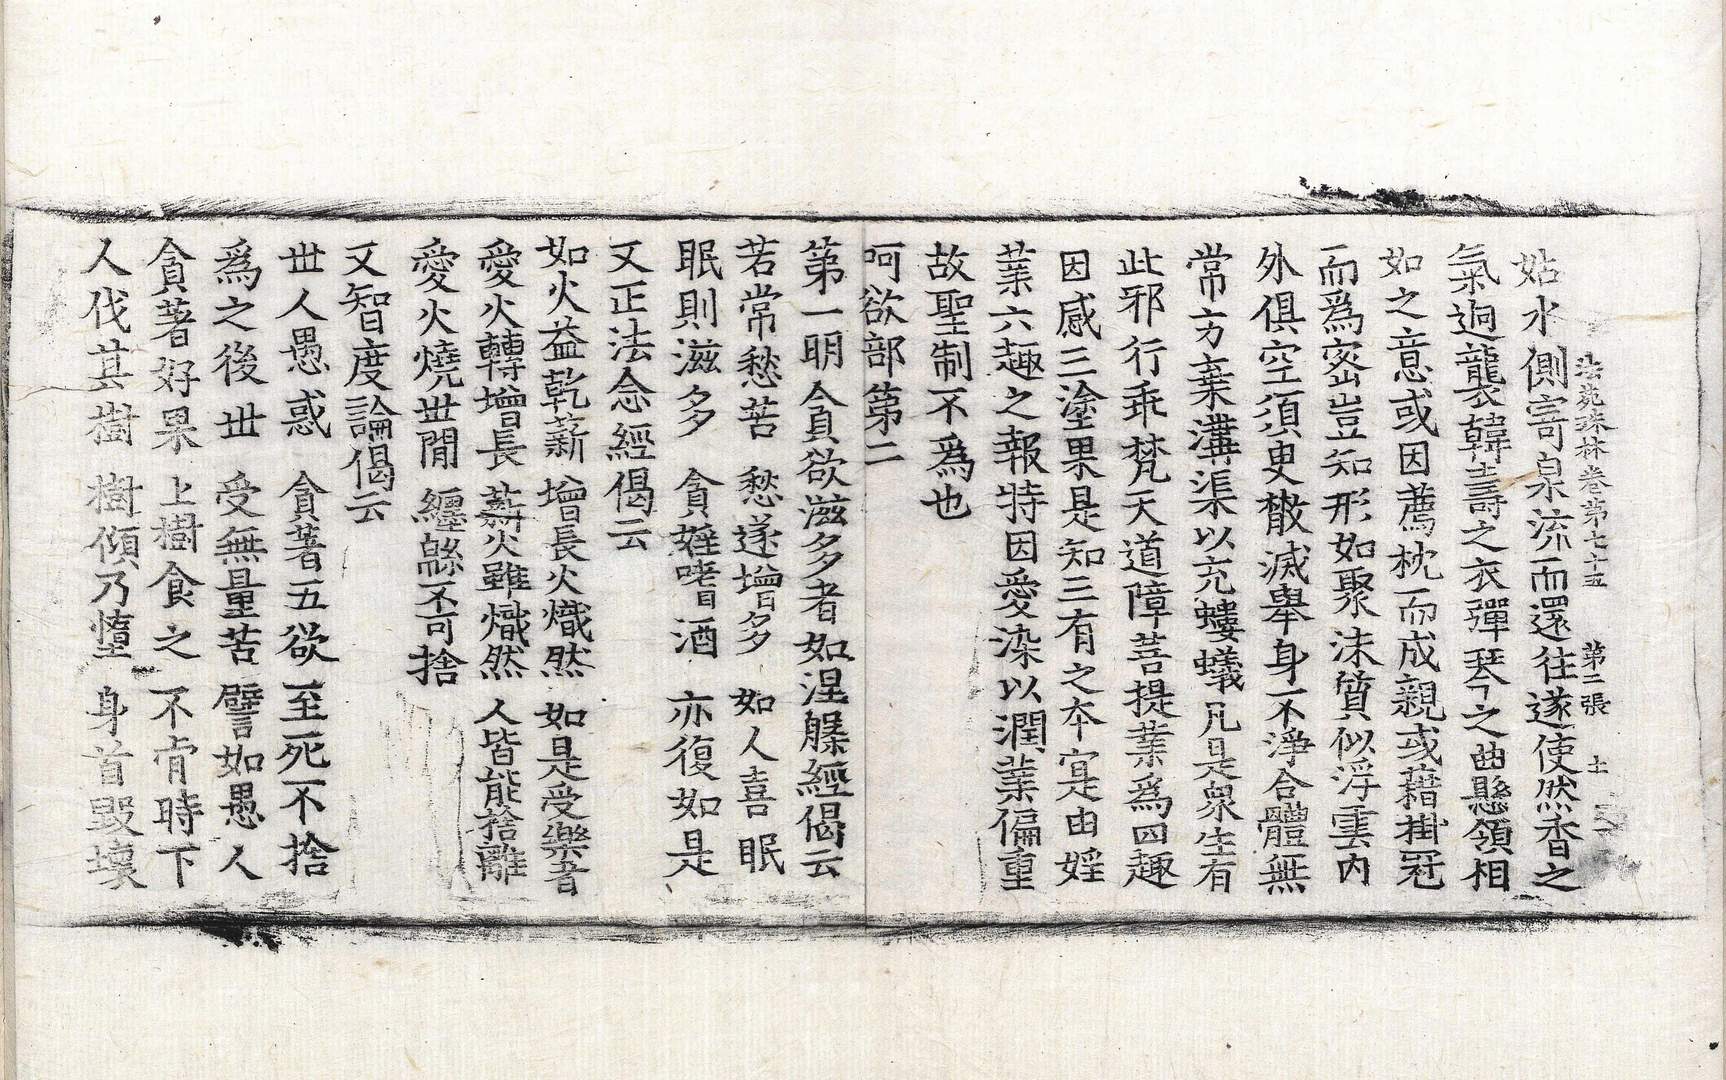 法苑珠林卷第七十五　第二張　土
姑水側寄泉流而還往遂使然香之
氣逈襲韓壽之衣彈琴之曲懸領相
如之意或因薦枕而成親或藉掛冠
而爲密豈知形如聚沫質似浮雲內
外俱空須臾散滅舉身不淨合體無
常方棄溝渠以充螻蟻凡是衆生有
此邪行乖梵天道障菩提業爲四趣
因感三塗果是知三有之本寔由婬
業六趣之報特因愛染以潤業偏重
故聖制不爲也
呵欲部第二
第一明貪欲滋多者如涅槃經偈云
若常愁苦　愁遂增多　如人喜眠
眠則滋多　貪婬嗜酒　亦復如是
又正法念經偈云
如火益乾薪　增長火熾然　如是受樂者
愛火轉增長　薪火雖熾然　人皆能捨離
愛火燒世間　纏緜不可捨
又智度論偈云
世人愚惑　貪著五欲　至死不捨
爲之後世　受無量苦　譬如愚人
貪著好果　上樹食之　不肯時下
人伐其樹　樹傾乃墮　身首毀壞